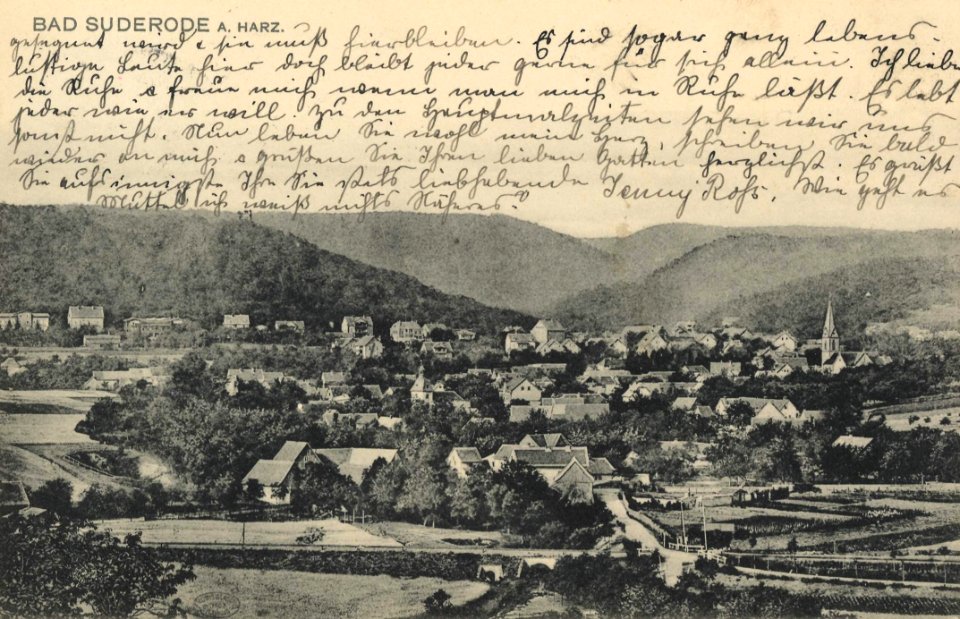 BAD SUDERODE A. HARZ.
gesegnet wird & sie muß hierbleiben. Es sind sogar ganz lebens-
lustige Leute hier doch bleibt jeder gerne für sich allein. Ich liebe
die Ruhe & freue mich wenn man mich in Ruhe läßt. Es lebt
jeder wie er will. Zu den Hauptmalzeiten sehen wir uns
sonst nicht. Nun leben Sie wohl mein Herz, schreiben Sie bald
wieder an mich & grüßen Sie Ihren lieben Gatten herzlichst. Es grüßt
Sie aufs innigste Ihre Sie stets liebhabende Jenny Rohs. Wie geht es
Muttel ich weiß nichts Näheres?